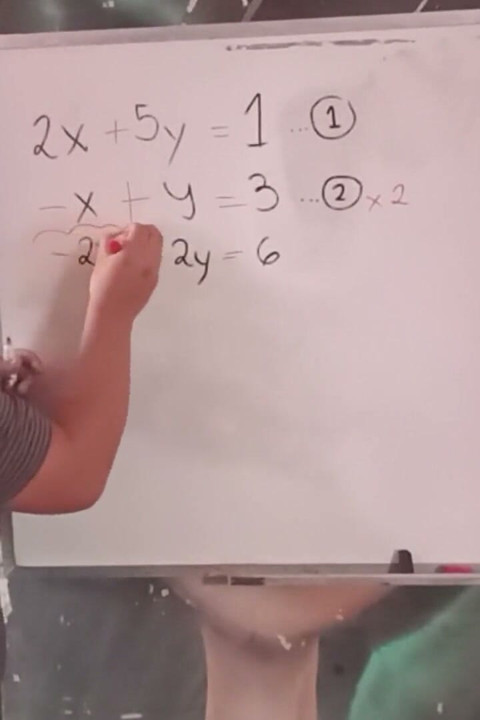 2x + 5y = 1 ...①
-x + y = 3 ...② x 2
-2 2y = 6